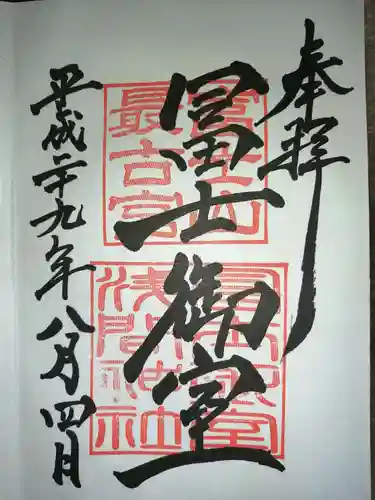 奉拝
冨士御室
冨士山
最古宮
冨士御室
浅間神社
平成二十九年八月四日